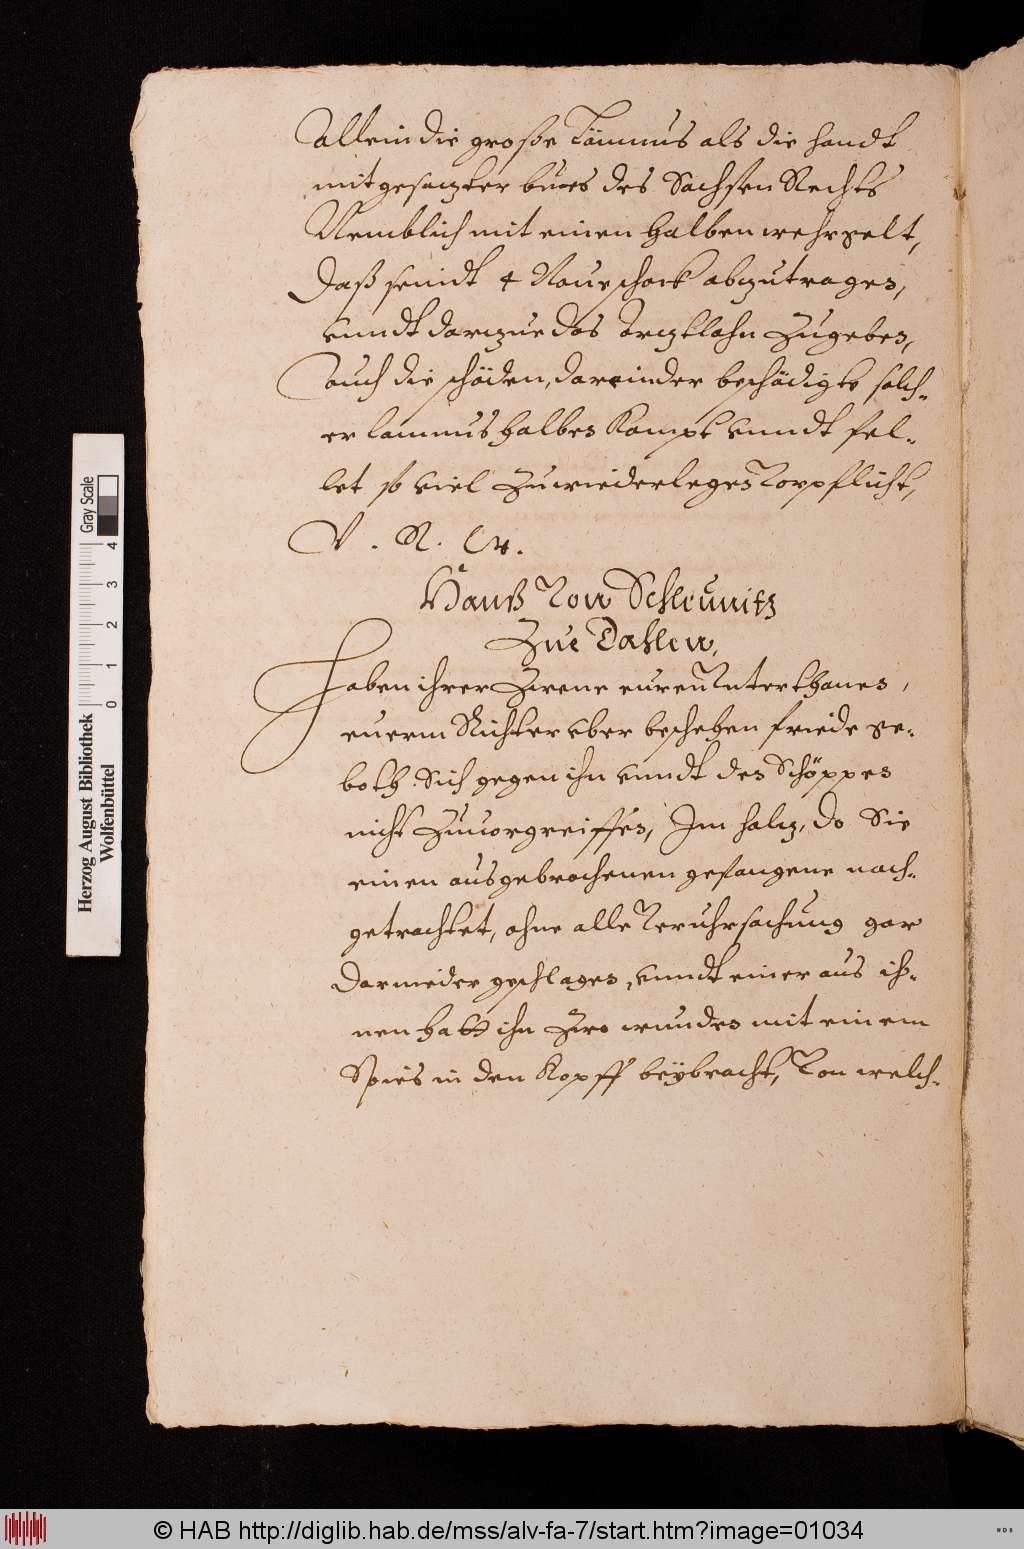 Allein die große Lämnus als die handt
mit gesatzter bues des Sachsen Rechts
Nemblich mit einen halben wehrgelt,
daß seindt 4 Naueschock abzutragen,
vnndt darzue das Arztlohn zugeben,
auch die schäden, darein der beschädigte solch-
er lamnus halben Kompt vnndt fel-
let so viel zu wiederlegen Vorpflicht,
V. R. W.
Hanß Von Schleunitz
Zue Dahlen,
Haben ihrer zwene euren Vnterthanen,
euerm Richter vber beschehen friede ge-
both. Sich gegen ihn vnndt den Schöppen
nicht zuuorgreiffen, Im holz, do Sie
einen ausgebrochenen gefangene nach-
getrachtet, ohne alle Veruhrsachung gar
darnieder geschlagen, vnndt einer aus ih-
nen hatt ihn zwo wunden mit einem
Spies in den Kopff beÿbracht, Von welch-
Herzog August Bibliothek
Wolfenbüttel
0 1 2 3 4
Gray Scale
© HAB http://diglib.hab.de/mss/alv-fa-7/start.htm?image=01034